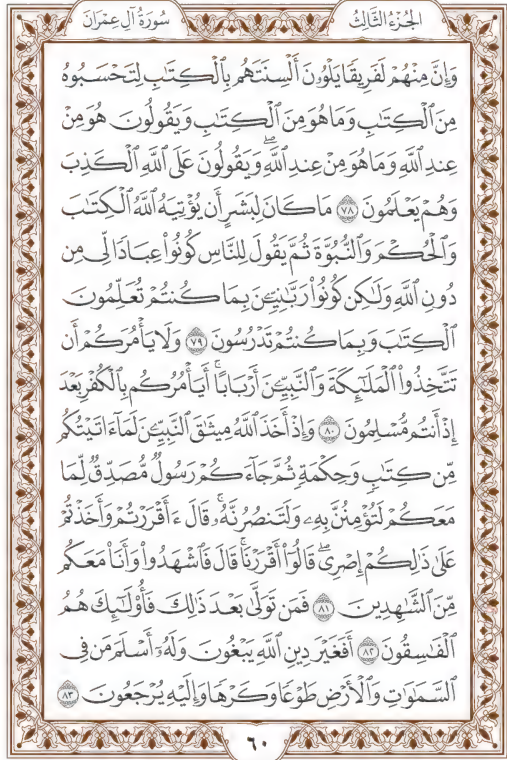 الجُزْءُ الثَّالِثُ
سُورَةُ آلِ عِمْرَانَ
وَإِنَّ مِنْهُمْ لَفَرِيقًا يَلْوُۥنَ أَلْسِنَتَهُم بِٱلْكِتَٰبِ لِتَحْسَبُوهُ
مِنَ ٱلْكِتَٰبِ وَمَا هُوَ مِنَ ٱلْكِتَٰبِ وَيَقُولُونَ هُوَ مِنْ
عِندِ ٱللَّهِ وَمَا هُوَ مِنْ عِندِ ٱللَّهِۖ وَيَقُولُونَ عَلَى ٱللَّهِ ٱلْكَذِبَ
وَهُمْ يَعْلَمُونَ ٧٨ مَا كَانَ لِبَشَرٍ أَن يُؤْتِيَهُ ٱللَّهُ ٱلْكِتَٰبَ
وَٱلْحُكْمَ وَٱلنُّبُوَّةَ ثُمَّ يَقُولَ لِلنَّاسِ كُونُوا۟ عِبَادًا لِّى مِن
دُونِ ٱللَّهِ وَلَٰكِن كُونُوا۟ رَبَّٰنِيِّـۧنَ بِمَا كُنتُمْ تُعَلِّمُونَ
ٱلْكِتَٰبَ وَبِمَا كُنتُمْ تَدْرُسُونَ ٧٩ وَلَا يَأْمُرَكُمْ أَن
تَتَّخِذُوا۟ ٱلْمَلَٰٓئِكَةَ وَٱلنَّبِيِّـۧنَ أَرْبَابًاۗ أَيَأْمُرُكُم بِٱلْكُفْرِ بَعْدَ
إِذْ أَنتُم مُّسْلِمُونَ ٨٠ وَإِذْ أَخَذَ ٱللَّهُ مِيثَٰقَ ٱلنَّبِيِّـۧنَ لَمَآ ءَاتَيْتُكُم
مِّن كِتَٰبٍ وَحِكْمَةٍ ثُمَّ جَآءَكُمْ رَسُولٌ مُّصَدِّقٌ لِّمَا
مَعَكُمْ لَتُؤْمِنُنَّ بِهِۦ وَلَتَنصُرُنَّهُۥۚ قَالَ ءَأَقْرَرْتُمْ وَأَخَذْتُمْ
عَلَىٰ ذَٰلِكُمْ إِصْرِىۖ قَالُوٓا۟ أَقْرَرْنَاۚ قَالَ فَٱشْهَدُوا۟ وَأَنَا۠ مَعَكُم
مِّنَ ٱلشَّٰهِدِينَ ٨١ فَمَن تَوَلَّىٰ بَعْدَ ذَٰلِكَ فَأُو۟لَٰٓئِكَ هُمُ
ٱلْفَٰسِقُونَ ٨٢ أَفَغَيْرَ دِينِ ٱللَّهِ يَبْغُونَ وَلَهُۥٓ أَسْلَمَ مَن فِى
ٱلسَّمَٰوَٰتِ وَٱلْأَرْضِ طَوْعًا وَكَرْهًا وَإِلَيْهِ يُرْجَعُونَ ٨٣
٦٠